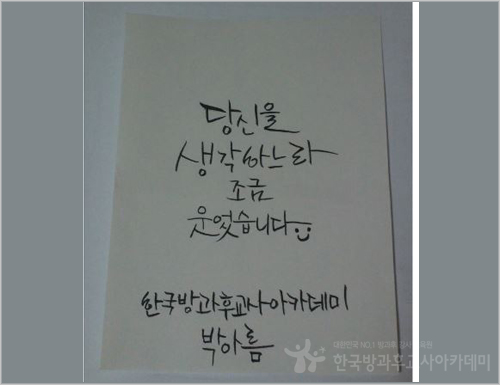 당신을
생각하느라
조금
웃었습니다
한국방과후교사아카데미
박아름
대한민국 NO.1 방과후 강사 교육원
한국방과후교사아카데미